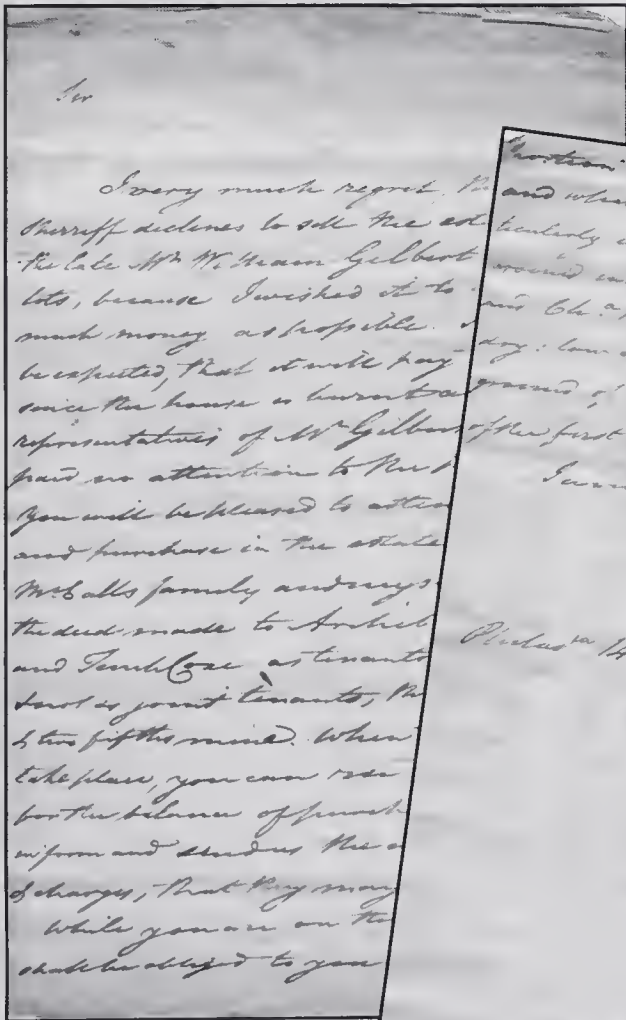 Sir
I very much regret, th
Sherriff declines to sell the est
the late Mr William Gilbert
lots, because I wished it to
much money as possible.
be expected, that it will pay
since the house is burnt a
representatives of Mr Gilber
paid no attention to the
You will be pleased to atten
and purchase in the estate
McCalls family and mys
the deed made to Archib
and Tench Coxe as tenants
& not as joint tenants, the
& two fifths mine. When
take place, you can
for the balance of purch
inform and send us the
of charges, that they may
While you are on the
shall be obliged to you
and whe
ticularly
around
day: law
ground of
of the first
I am
Philada 14